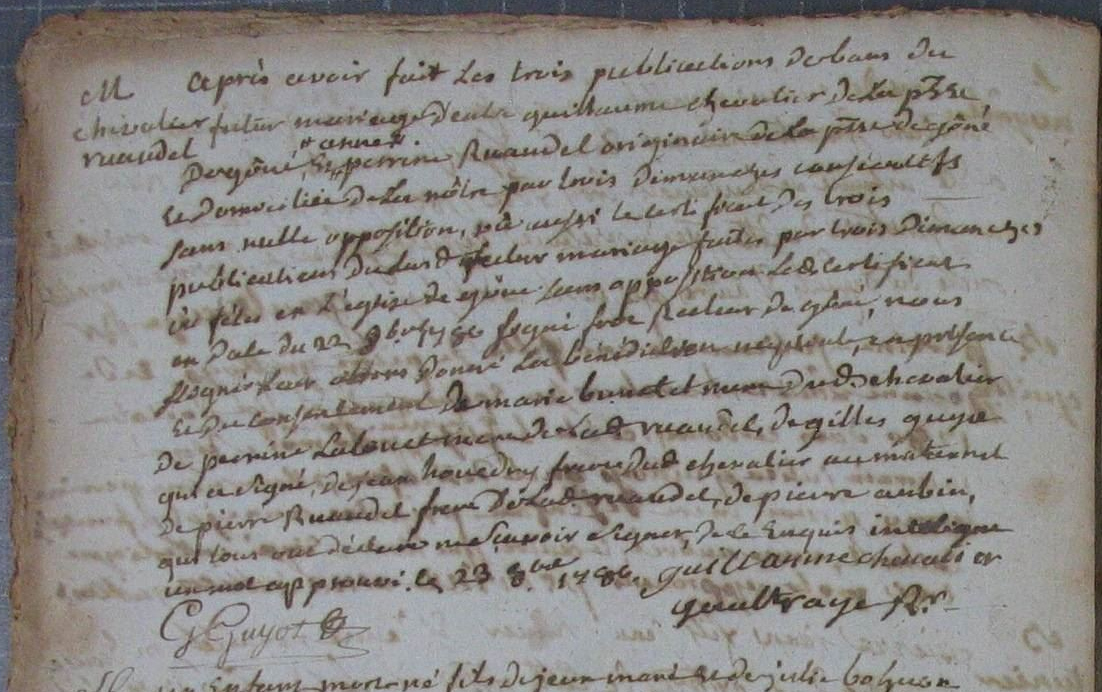 M après avoir fait les trois publications de bans du
chevalier futur mariage d'entre guillaume chevalier de la psse
ruaudel
De gôné, Et *anne* perrine Ruaudel originaire de la psse de gôné
Et domiciliée de La nôtre par trois Dimanches consécutifs
sans nulle opposition, vû aussi le certificat des trois
publications du susd futur mariage faites par trois Dimanches
ou fêtes en L'eglise de gône sans opposition Led. certificat
en Date du 22 8bre 1786 signé Recteur de gôné, nous
avons donné La bénédiction nuptiale, en présence
Et du consentement De marie mere dud. chevalier
De perrine Lalouet mere de Lad ruaudel, de gilles guyot
qui a signé, de jean houedry frere dud chevalier au maternel
De pierre Ruaudel frere De Lad. ruaudel, de pierre aubin,
qui tous ont déclaré ne sçavoir signer, de ce Enquis interligne
un mot approuvé. le 23 8bre 1786. guillaume chevalier
G Guyot
gaultraye Rr
un Enfant mort né fils de jean Et de julie